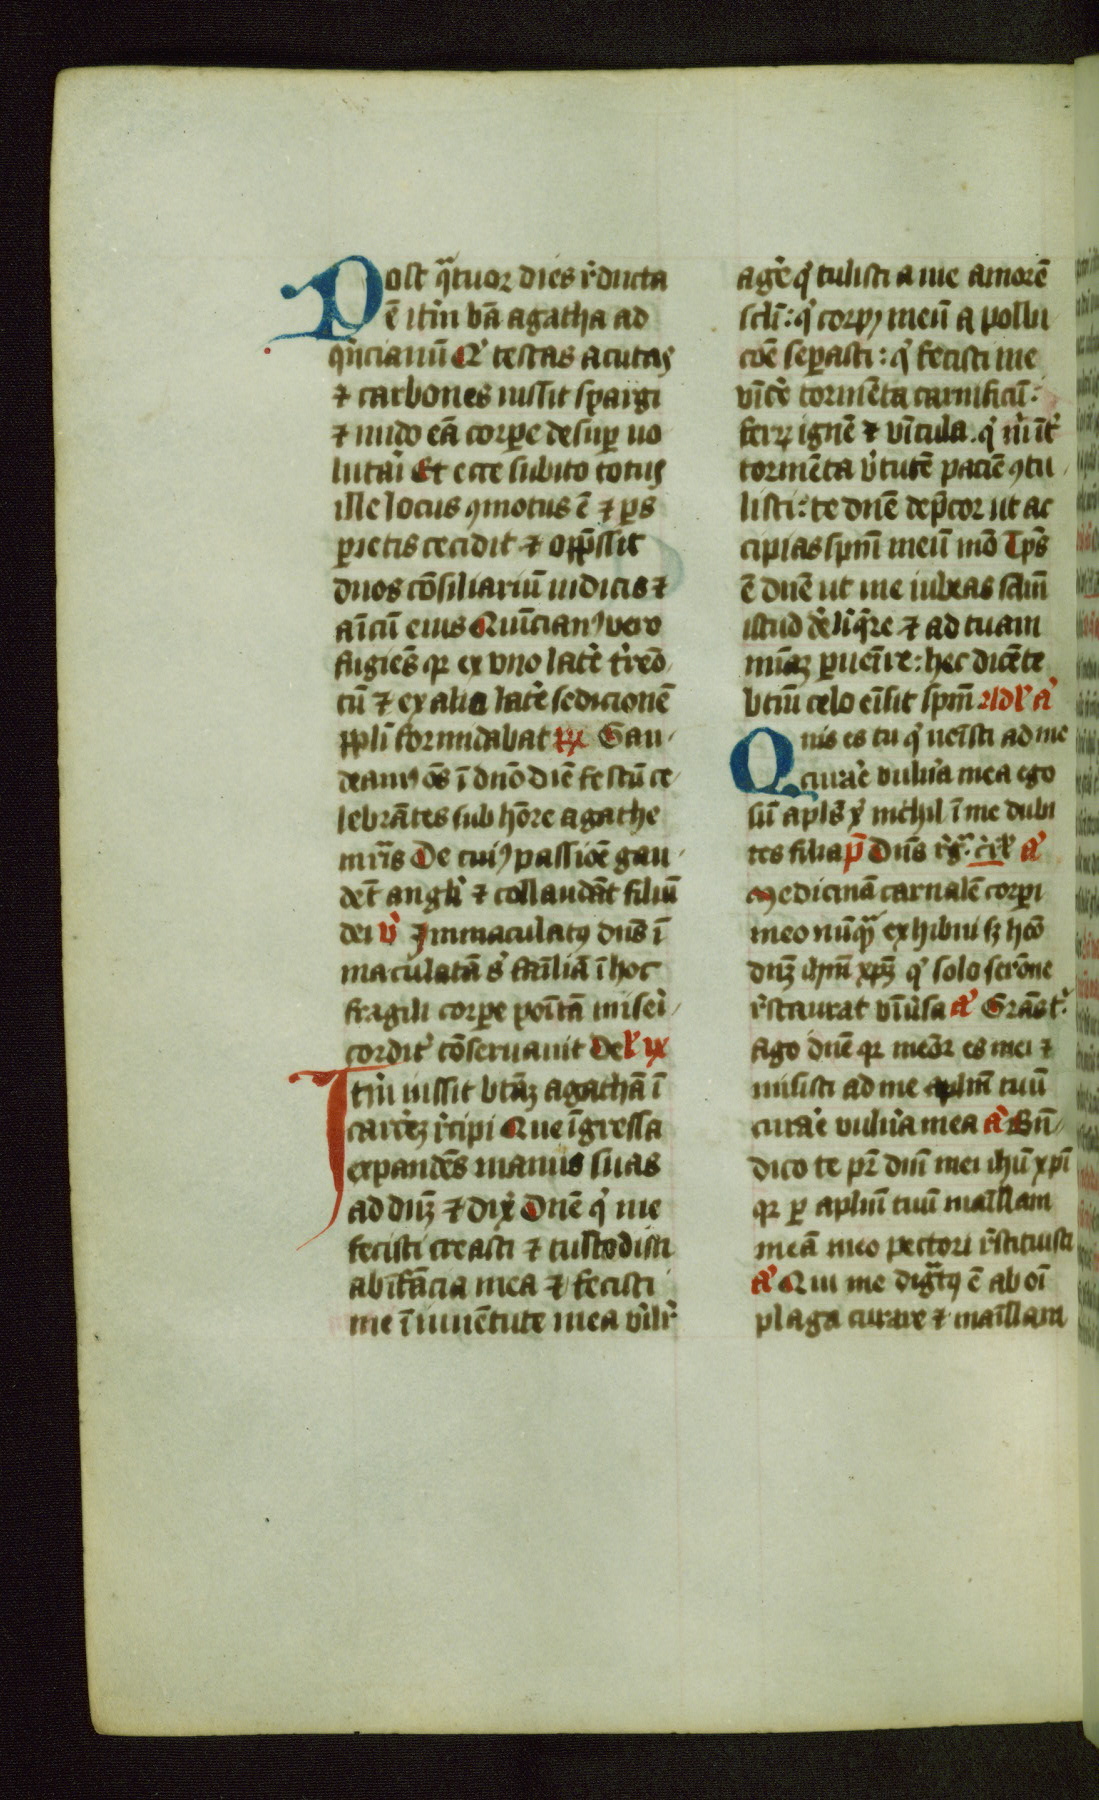 Post q̃tuor dies r̾ducta
ē itm̾ bā agatha ad
qi̾ncianū Q̾ testas acutas
⁊ carbones iussit sp̲argi
⁊ nudo eā corp̲e desup̲ uo
lutai̾ Et ecce subito totus
ille locus ꝯmotus ē ⁊ p̲s
p̲ietis cecidit ⁊ opp̄ssit
duos cōsiliariū iudicis ⁊
aīcū eius Quīncianꝰ vero
fugiēs qr ex vno late̾ tr̾eō
cū ⁊ ex alia late̾ sedicionē
pp̲li formidabat Gau
deamꝰ oēs ī dnō diē festū ce
lebrātes sub hōre agathe
mr̄is De cuiꝰ passiōe gau
dēt angli̾ ⁊ collaudāt filiū
dei v̾ Immaculatꝰ dn̄s ī
maculatā s̾ faīliā ī hoc
fragili corp̲e poītā misei̾
cordit̾ cōseruauit De l̾ ix
Itm̾ iussit btāꝫ agathā ī
carce̾ꝫ r̾cipi Que īgressa
expandēs manus suas
ad dnꝫ ⁊ dix̾ Dn̄e q̾ me
fecisti creasti ⁊ custodisti
ab īfācia mea ⁊ fecisti
me ī iuuētute mea vi̾lr̾
age̾ q̾ tulisti a me amorē
scl̄i: q̾ corpꝰ meū a pollu
cōe sep̲asti: q̾ fecisti me
vīce̾ tormēta carnificū:
ferꝝ ignē ⁊ vīcula. q̾ m̾ īt̾
tormēta v̾tutē paciē ꝯtu
listi: te dn̄e dep̄cor ut ac
cipias sp̄m meū mō Tp̲s
ē dn̄e ut me iubeas sclm̄
istud de̾liq̾re ⁊ ad tuam
mīaꝫ p̲ueīre: hec dicēte
btm̄ celo eīsit sp̄m a̾
Quis es tu q̾ ueīsti ad me
curae̾ vuln̾a mea ego
sū apl̄s x̾ nichil ī me dubi
tes filia p̄ Dn̄s a̾
Medicinā carnalē corp̲i
meo nūq̃ exhibui sꝫ hēo
dn̄ꝫ ihm̄ xp̄ꝫ q̾ solo sermōe
r̾staurat vniu̾sa a̾ Grās t̾
ago dn̄e qr memor es mei ⁊
misisti ad me aplm̄ tuū
curae̾ vuln̾a mea a̾ Bn̄
dico te pr̄ dnī mei ihū xp̄i
qr p̲ aplm̄ tuū maīllam
meā meo pectori r̾stituisti
a̾ Qui me dig̃tꝰ ē ab oī
plaga curare ⁊ maīllam